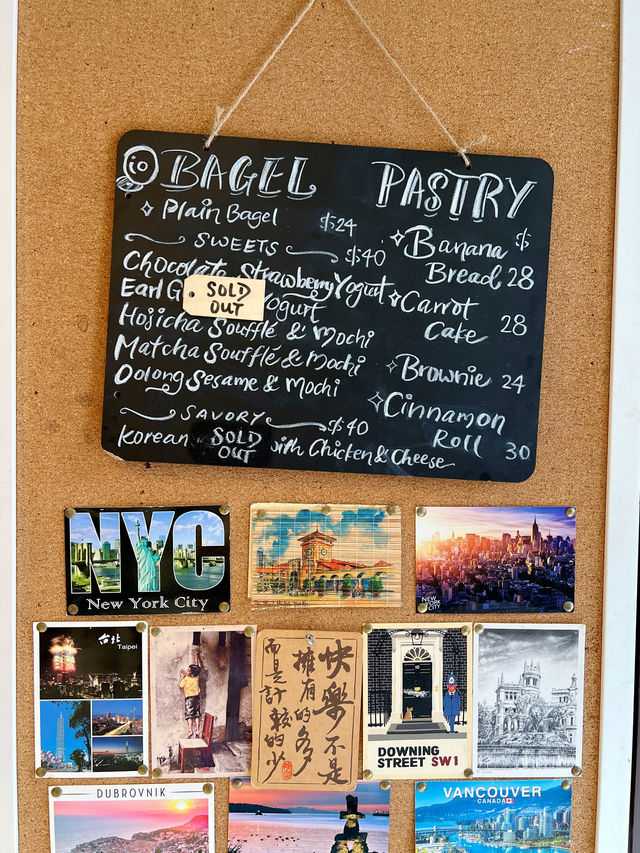 BAGEL
Plain Bagel $24
SWEETS $40
Chocolate Strawberry Yogurt
Earl G Yogurt
SOLD
OUT
Hojicha Soufflé & Mochi
Matcha Soufflé & Mochi
Oolong Sesame & Mochi
SAVORY $40
Korean with Chicken & Cheese
SOLD
OUT
PASTRY
Banana $
Bread 28
Carrot
Cake 28
Brownie 24
Cinnamon
Roll 30
NYC
New York City
NEW
YORK
CITY
台北
Taipei
快樂不是
擁有的多
而是計較的少
DOWNING
STREET SW1
DUBROVNIK
VANCOUVER
CANADA